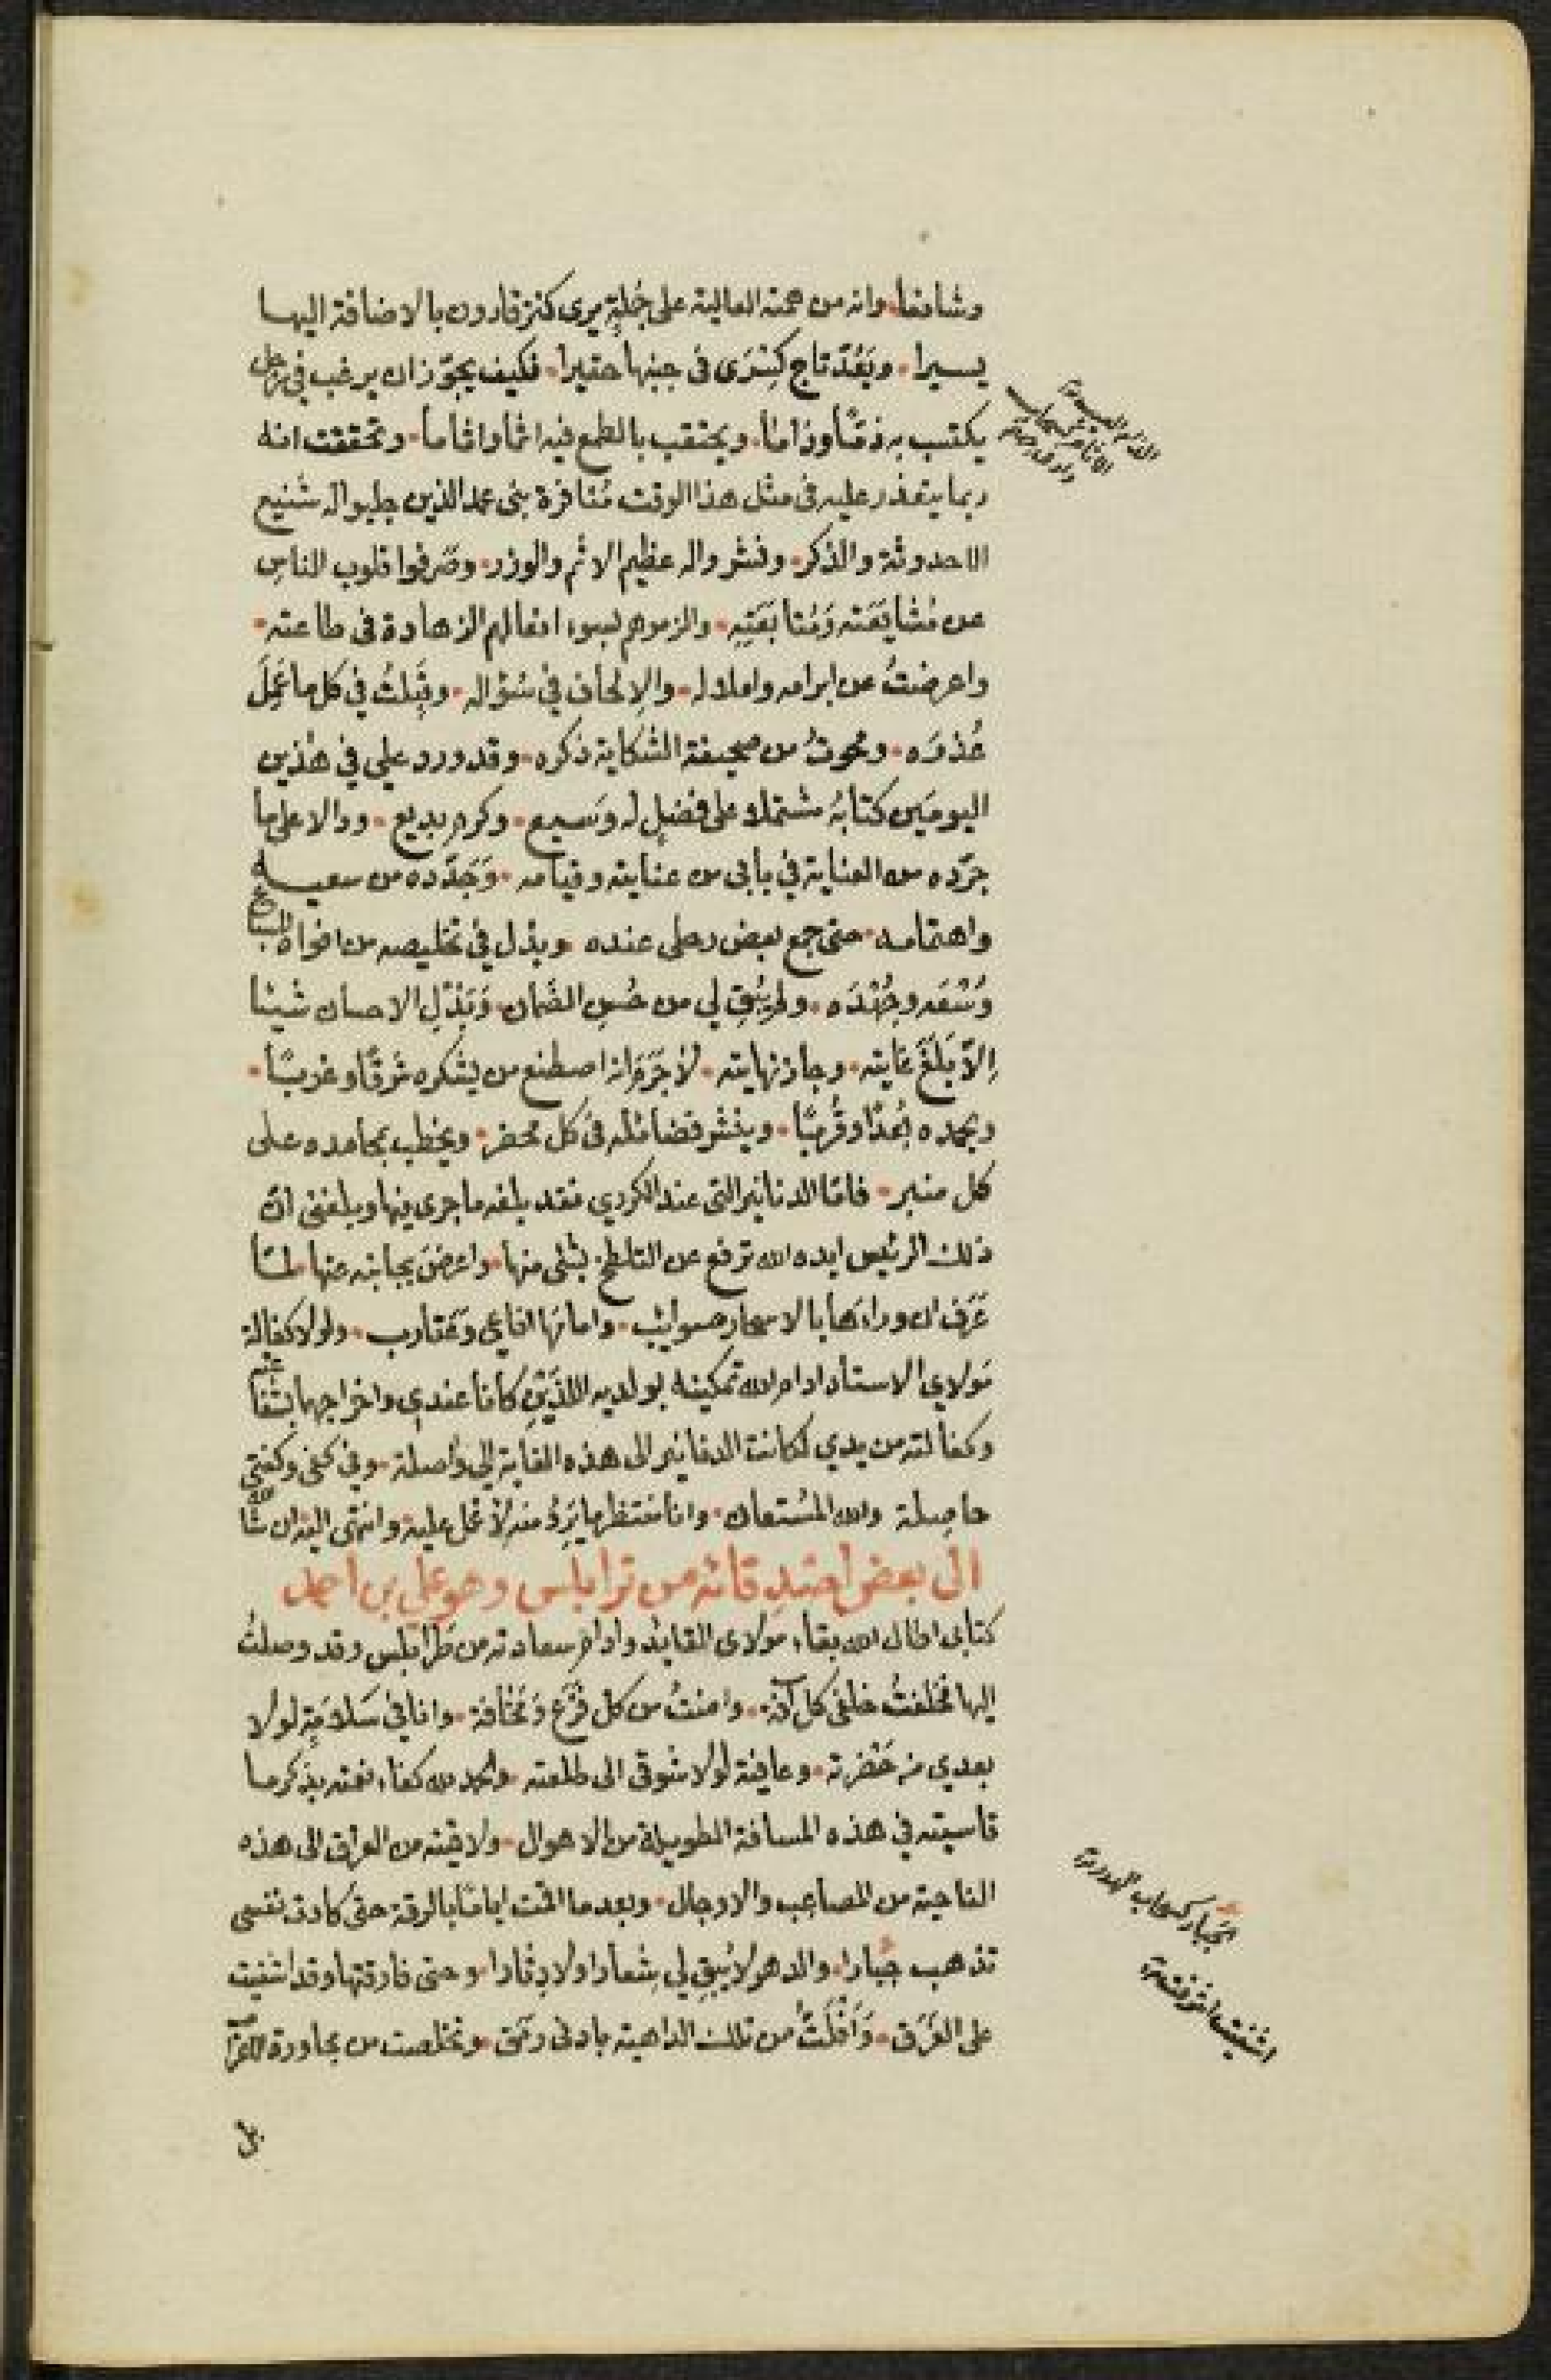 وشانفا. وانه من همته العالية على جُملةٍ يرى كنز قارون بالاضافة اليها
يسيرا. ويَعُدّ تاج كِسْرَى فى جنبها حقيرا. فكيف يجوّز ان يرغب في
يكتسب به ذمًّا وذامًا. ويحتقب بالطمع فيه اثما واثاما. وتحققت انه
ربما يتعذر عليه فى مثل هذا الوقت مُنافرة بنى عمه الذين جلبوا له شنيع
الاحدوثة والذكر. ونشروا له عظيم الاثم والوزر. وصَرفوا قلوب الناس
عن مُشايَعَته وَمُتابَعَتِهِ. والزموهم لسوء افعالهم الزهادة فى طاعته.
واعرضتُ عن ابرامه واملاله. والإلحاف في سُؤاله. وقبِلتُ في كل ما عَمِلَ
عُذرَه. ومحوتُ من صحيفة الشكاية ذكره. وقد ورد علي في هٰذين
اليومَين كتابُهُ مشتملا على فضلٍ له وَسيع. وكرمٍ بديع. ودالا على ما
جرّده من العناية في بابى من عنايته وقيامه. وَجَدّده من سعيه
واهتمامه. حتى جمع بعض رحلى عنده. وبذل في تخليصه من افواه السباع
وُسْعَه وجُهْدَه. ولم يُبقِ لي من حُسنِ الضمان. وَبَذْلِ الاحسان شيئا
إِلاّ بَلَغَ غايته. وجاز نهايته. لاَ جَرَمَ انه اصطنع من يشكره شرقًا وغربًا.
ويحمده بُعدًا وقُربًا. وينشر فضائله فى كل محضر. ويخطب بمحامده على
كل منبر. فامّا الدنانير التى عند الكردي فقد بلغه ما جرى فيها وبلغنى انّ
ذلك الرئيس ايده الله ترفع عن التلطخ بشئ منها. واعرضَ بجانبه عنها لمّا
عَرَف ان وراءَها بالاسحار صوايب. وامامَها افاعى وعَقارب. ولولا كفالة
مَولاي الاستاد ادام الله تمكينه بولديه اللذَيْنِ كانا عندي واخراجهما بشفاعته
وكفالته من يدي لكانت الدنانير الى هذه الغاية إلي واصلة. وفي كفى وكفتى
حاصِلة والله المُستعان. وانا منتظر ما يَرِدُ منه لأعمل عليه وانتهى اليه ان شا الله
الى بعض اصدقائه من ترابلس وهو علي بن احمد
كتابى اطال الله بقاء مولاى القايد وادام سعادته من طرابلس وقد وصلتُ
اليها فخلفتُ خلفى كل آفة. وامنتُ من كل فزَع وَمخافة. وانا في سَلامَةٍ لولا
بعدي من حَضرته. وعافية لولا شوقى الى طلعته. والحمد لله كفاء نعمته بذكر ما
قاسيته في هذه المسافة الطويلة من الاهوال. ولاقيته من العراق الى هذه
الناحية من المصاعِب والاوجال. وبعد ما اقمت ايامًا بالرقة حتى كادت نفسى
تذهب جُبارا. والدهر لا يُبقِى لي شِعارا ولا دِثارا. وحتى فارقتها وقد اشفيت
على الغَرَق. وَاَفْلَتُّ من تلك الداهية بادنى رمَق. وتخلصت من مجاورة
الجُبار كسحاب الهدر
اشفيت اشرفت